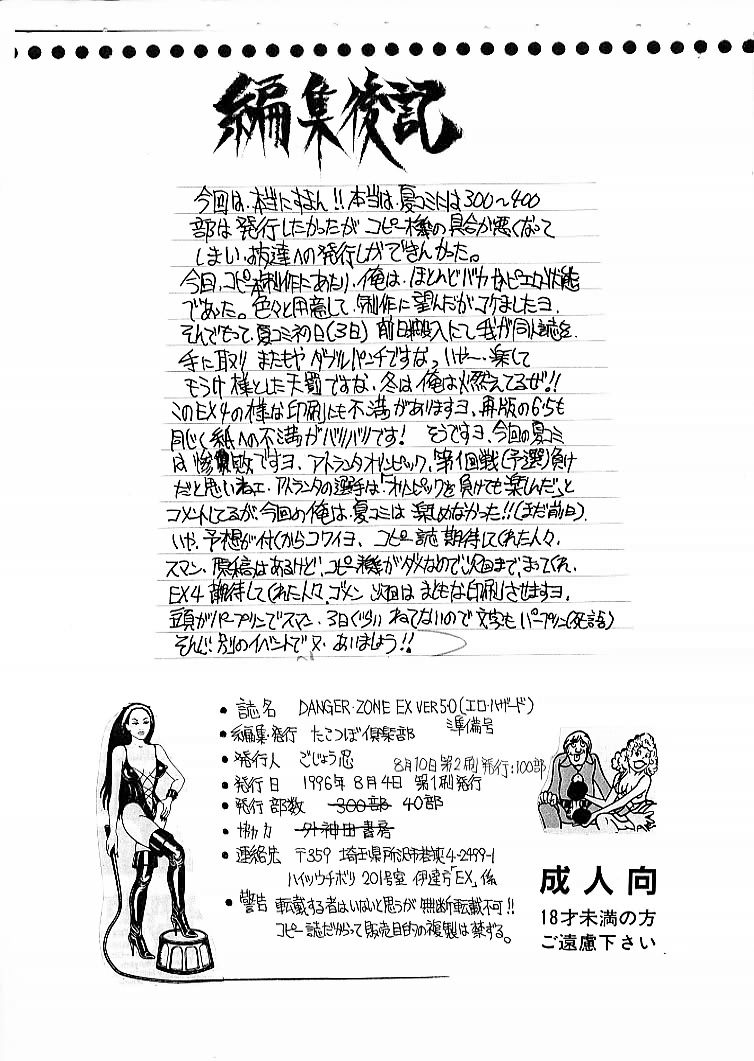 編集後記
今回は、本当にすまん!!本当は、夏コミには300〜400
部は発行したかったが コピー機の具合が悪くなって
しまい、お友達への発行しかできんかった。
今回、コピー本制作にあたり、俺は、ほとんどバカかピエロ状態
であった。色々と用意して、制作に望んだがコケましたヨ、
そんでもって、夏コミ初日(3日) 前日搬入にて我が同人誌を、
手に取り またもやダブルパンチですな、いや〜、楽して
もうけ様とした天罰ですな、冬は俺は燃えてるぜ!!
このEX4の様な印刷にも不満がありますヨ、再版の6.5も
同じく紙への不満がバリバリです! そうですヨ、今回の夏コミ
は惨敗ですヨ、アトランタオリンピック、第1回戦(予選)負け
だと思いねェ、アトランタの選手は「オリンピックを負けても楽しんだ」と
コメントしてるが、今回の俺は、夏コミは楽しめなかった!!(まだ前日)、
いや、予想が付くからコワイヨ、コピー誌期待してくれた人々、
スマン、原稿はあるけど、コピー機がダメなので次回まで、まってくれ、
EX4期待してくれた人々、ゴメン 次回はまともな印刷させますヨ、
頭がパープリンでスマン、3日ぐらいねてないので文字もパープリン(死語)
そんじゃ別のイベントで又、あいましょう!!
・誌名 DANGER・ZONE EX VER5.0(エロ・ハザード)
準備号
・編集・発行 たこつぼ倶楽部
・発行人 ごじょう忍
8月10日第2刷発行:100部
・発行日 1996年8月4日 第1刷発行
・発行部数 300部 40部
・協力 外神田書房
・連絡先 〒359 埼玉県所沢市若狭4-2499-1
ハイツウチボリ 201号室 伊達方「EX」係
・警告 転載する者はいないと思うが無断転載不可!!
コピー誌だからって販売目的の複製は禁ずる。
成人向
18才未満の方
ご遠慮下さい